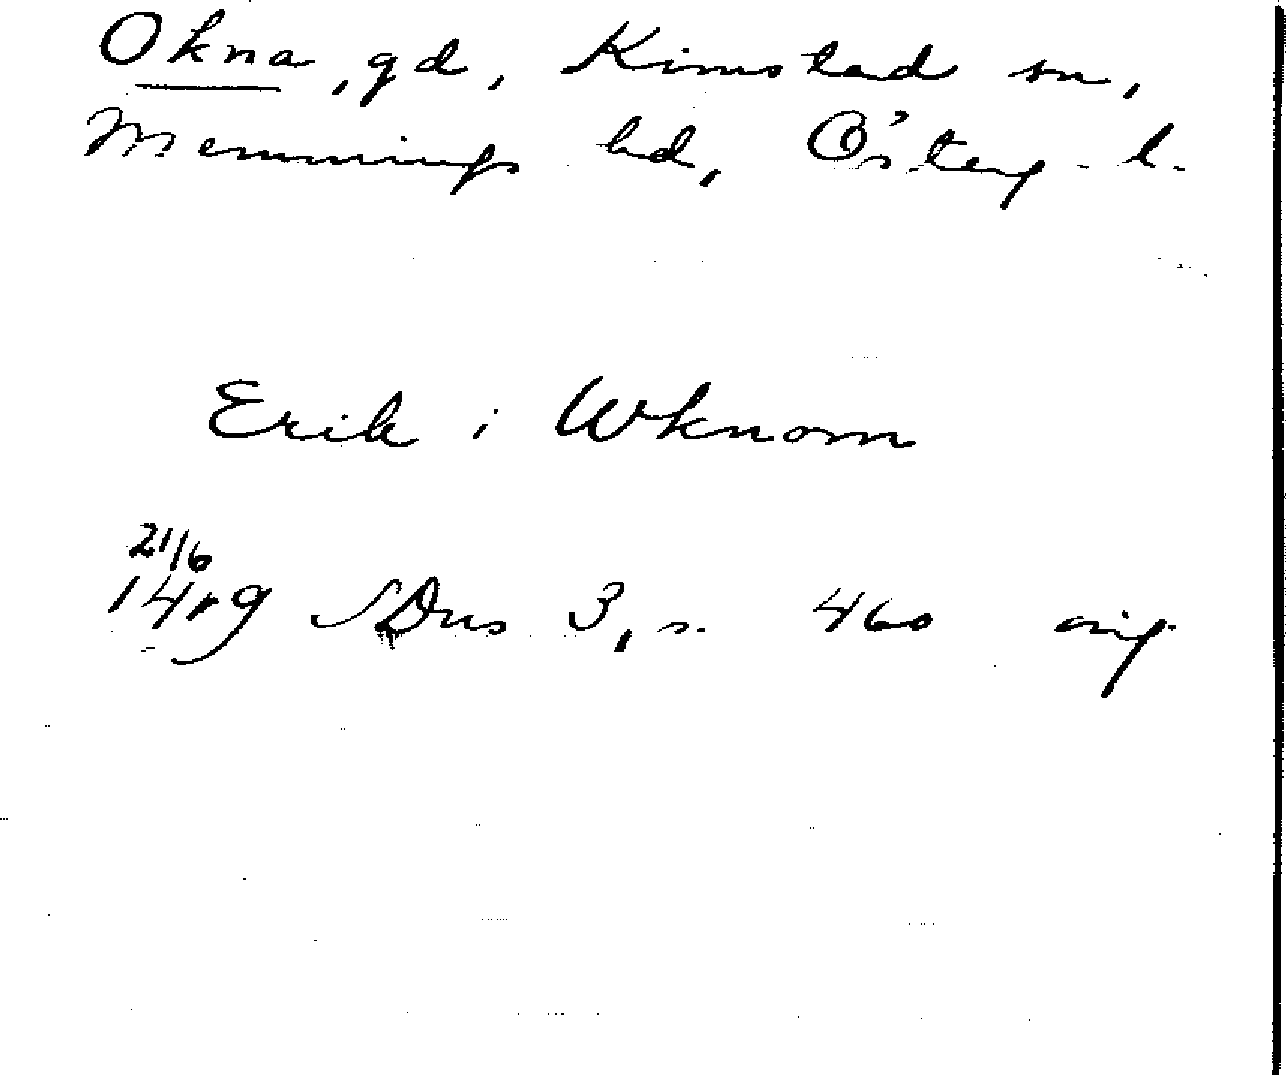 Okna, gd, Kimstad sn,
Memmings hd, Österg. l.
Erik i Wknom
21/6
1419 SDns 3, s. 460 orig.